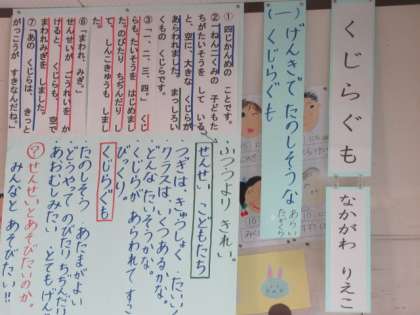 くじらぐも
なかがわ りえこ
(一)げんきで たのしそうな
くじらぐも
①四じかんめの ことです。
②一ねん二くみの 子どもた
ちが たいそうを して いる
と、空に、大きな くじらが
あらわれました。まっしろい
くもの くじらです。
③「一、二、三、四。」くじ
らも、たいそうを はじめまし
た。のびたり ちぢんだり し
て、しんこきゅうも しまし
た。
⑥「まわれ、みぎ。」
せんせいが ごうれいを か
けると、くじらも、空で
まわれみぎを しました。
⑦「あの くじらは、きっと
がっこうが すきなんだね。」
ふつうより きれい。
せんせい こどもたち
つぎは、きゅうしょく
クラスは、いくつあるかな。
どんな たいそうかな。
くじらが あらわれて
びっくり。
くじらぐも
たのしそう。あたまがよい
どうやって のびたり ちぢんだり
あわむしみたい
？せんせいとあそびたいのか。
みんなと あそびたい!!